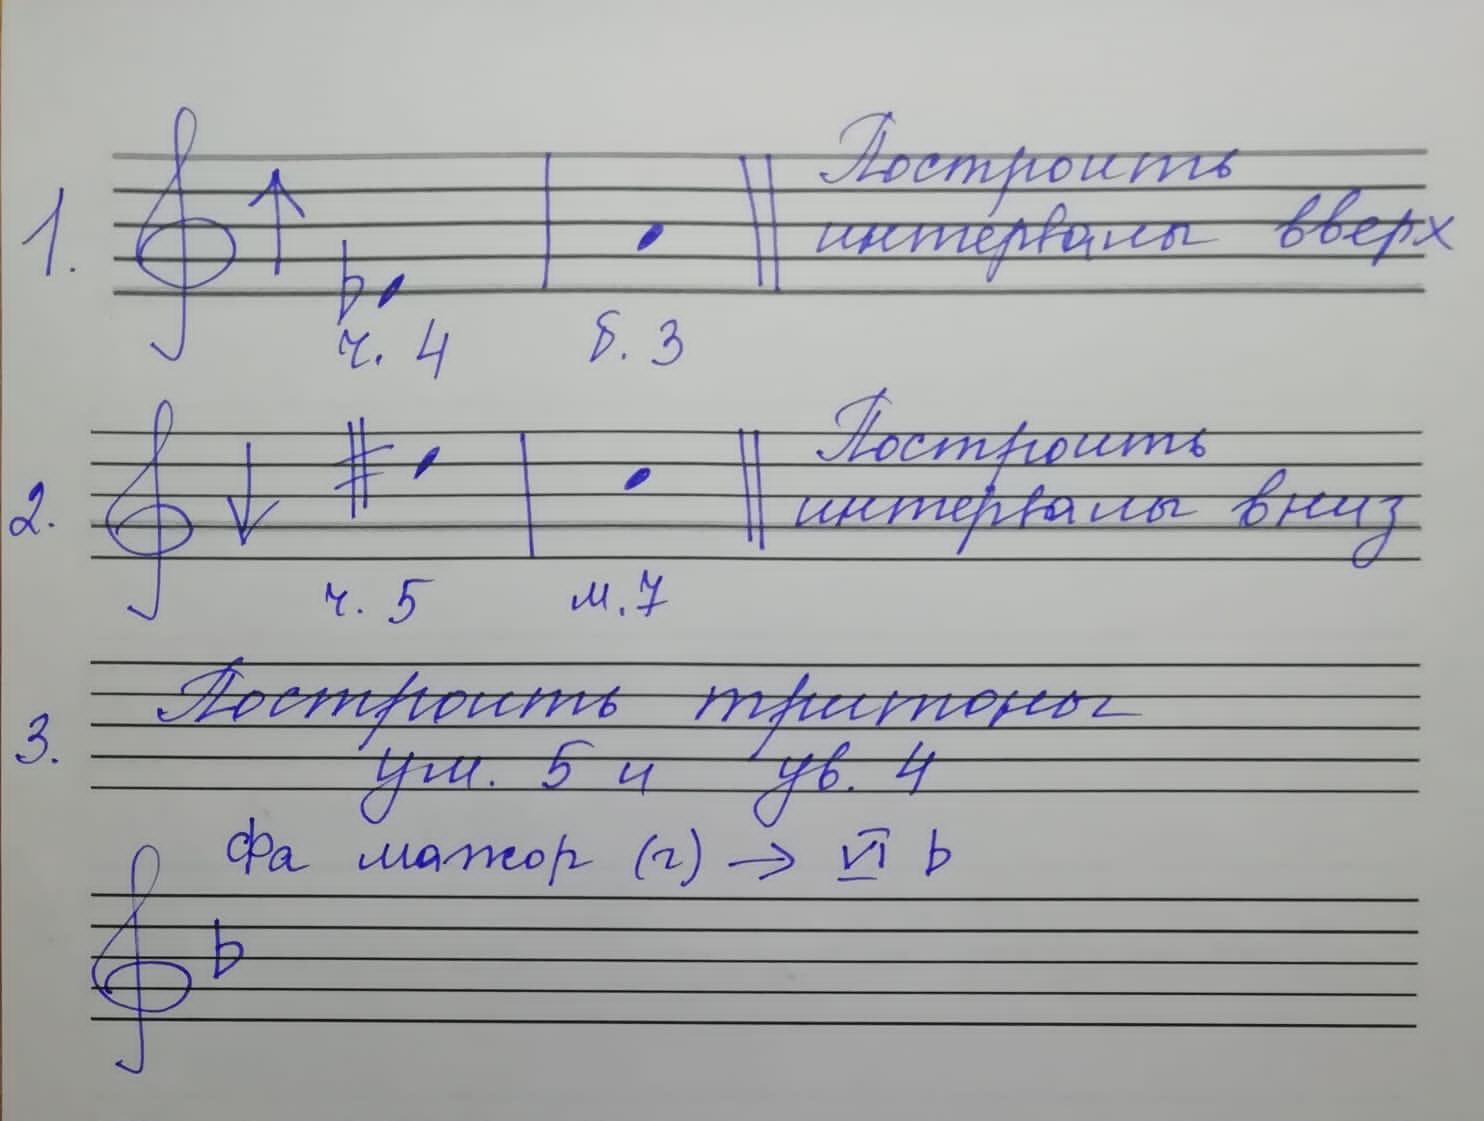 1. Построить
интервалы вверх
ч. 4 б. 3
2. Построить
интервалы вниз
ч. 5 м. 7
3. Построить тритоны
ум. 5 и ув. 4
Фа мажор (г) → VI b